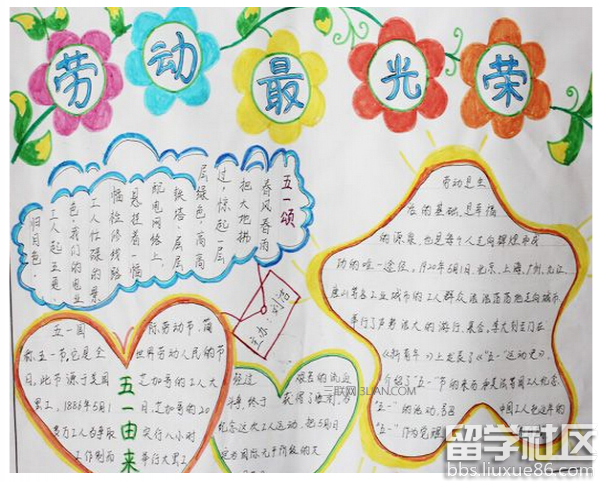 劳动最光荣
五一颂
春风春雨
把大地拂
过，惊起一层
层绿色，高高
铁塔，层层
配电网络上，
悬挂着一幅
幅检修线路
工人忙碌的景
色，我们的电业
工人起五更，
归
主办：刘浩
五一国
际劳动节，简
称五一节，它是全
世界劳动人民的节
日，此节源于美国
芝加哥的工人大
罢工，1886年5月1
日，芝加哥的20
多万工人为争取
实行八小时
工作制而
举行大罢工
五一由来
经过
艰苦的流血
斗争，终于
获得了胜利，为
纪念这次工人运动，把5月1日
定为国际
劳动是生
活的基础，是幸福
的源泉，也是每个人走向辉煌成
功的唯一途径，1920年5月1日，北京、上海、广州、九江、
唐山等各工业城市的工人群众浩浩荡荡地走向城市，
举行了声势浩大的游行、集会，李大钊立即在
《新青年》上发表了《"五一"运动史》，
介绍了"五一"节的来历和美法等国工人纪念
"五一"的活动，号召
中国工人把这年的
"五一"作为觉醒
三联网 3LIAN.COM
留学社区
bbs.liuxue86.com